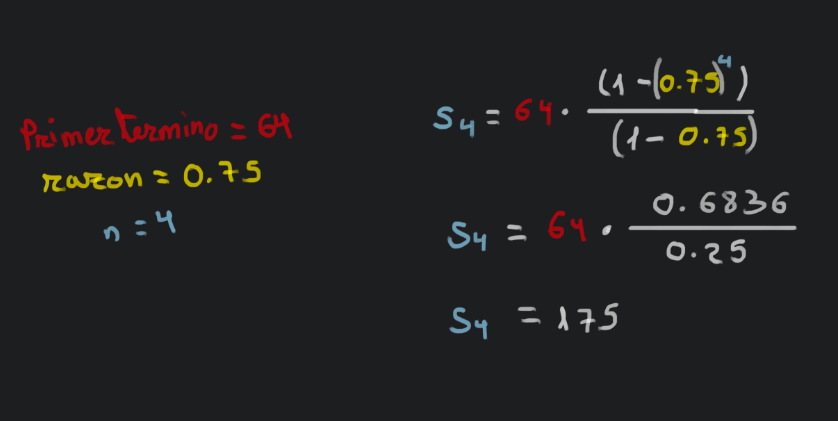 Primer termino = 64
razon = 0.75
n = 4
S4 = 64 · (1 - (0.75)^4) / (1 - 0.75)
S4 = 64 · 0.6836 / 0.25
S4 = 175